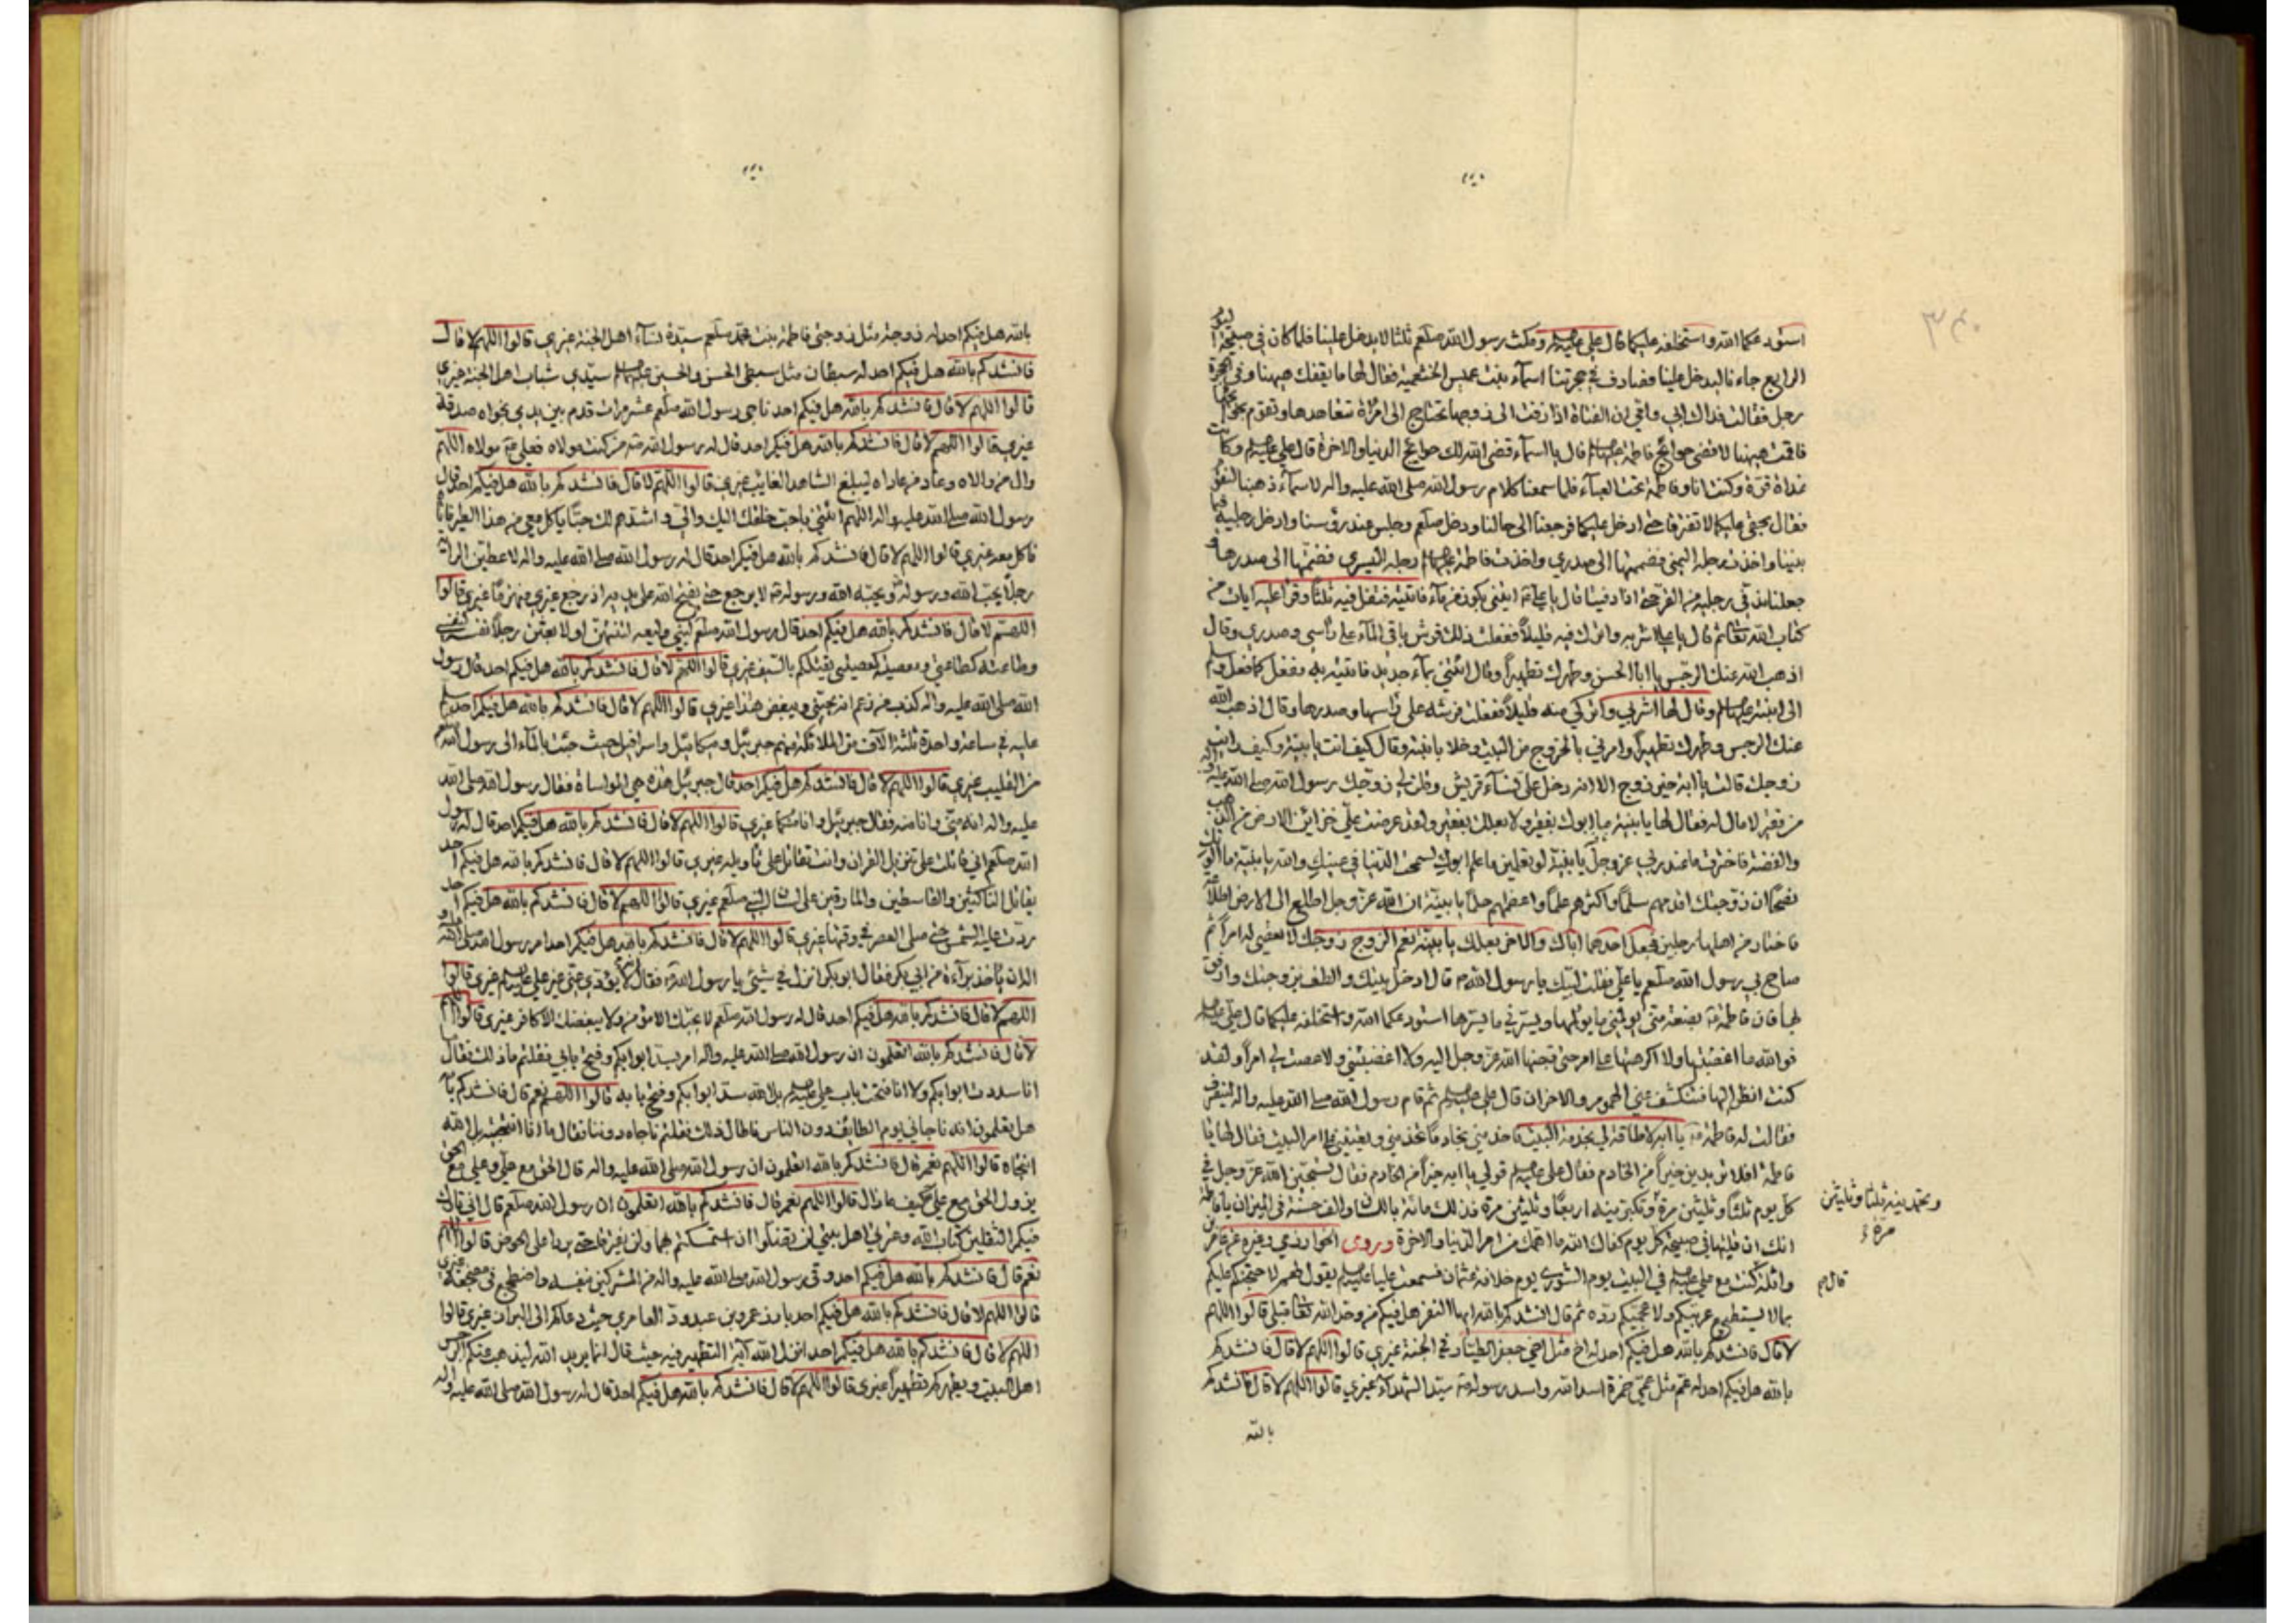 استودعكما الله واستخلفه عليكما قال علي عليه السلام ومكث رسول الله صلعم ثلثا لا يدخل علينا فلما كان في صبيحة اليوم
الرابع جاءنا ليدخل علينا فصادف في حجرتنا اسمآء بنت عميس الخثعمية فقال لها ما يقفك ههنا وفي الحجرة
رجل فقالت فداك ابي وامي ان الفتاة اذا زفت الى زوجها تحتاج الى امرأة تتعاهدها وتقوم بحوائجها
فاقمت ههنا لاقضي حوائج فاطمة عليها السلام قال يا اسمآء قضى الله لك حوائج الدنيا والاخرة قال علي عليه السلام وكانت
غداة قرة وكنت انا وفاطمة تحت العبآء فلما سمعنا كلام رسول الله صلى الله عليه واله لاسمآء ذهبنا لنقوم
فقال بحقي عليكما لا تفترقا حتى ادخل عليكما فرجعنا الى حالنا ودخل صلعم وجلس عند رؤسنا وادخل رجليه فيما
بيننا واخذت رجله اليمنى فضممتها الى صدري واخذت فاطمة عليها السلام رجله اليسرى فضمتها الى صدرها و
جعلنا ندفي رجليه من القر حتى اذا دفيتا قال يا علي ائتني بكوز من مآء فاتيته فتفل فيه ثلثا وقرأ عليه ايات من
كتاب الله تعالى ثم قال يا علي اشربه واترك فيه قليلا ففعلت ذلك فرش باقي المآء على رأسي وصدري وقال
اذهب الله عنك الرجس يا ابا الحسن وطهرك تطهيرا وقال ائتني بمآء جديد فاتيته به ففعل كما فعل وسلم
الى ابنته عليها السلام وقال لها اشربي واتركي منه قليلا ففعلت فرشه على رأسها وصدرها وقال اذهب الله
عنك الرجس وطهرك تطهيرا وامرني بالخروج من البيت وخلا بابنته وقال كيف انت يا بنية وكيف رايت
زوجك قالت يا ابه خير زوج الا انه دخل علي نسآء قريش وقلن لي زوجك رسول الله صلى الله عليه واله
من فقير لا مال له فقال لها يا بنية ما ابوك بفقير ولا بعلك بفقير ولقد عرضت علي خزائن الارض من الذهب
والفضة فاخترت ما عند ربي عز وجل يا بنية لو تعلمين ما علم ابوك لسمجت الدنيا في عينيك والله يا بنية ما الوتك
نصحا ان زوجتك اقدمهم سلما واكثرهم علما واعظمهم حلما يا بنية ان الله عز وجل اطلع الى الارض اطلاعة
فاختار من اهلها رجلين فجعل احدهما اباك والاخر بعلك يا بنية نعم الزوج زوجك لا تعصي له امرا ثم
صاح بي رسول الله صلعم يا علي فقلت لبيك يا رسول الله قال ادخل بيتك والطف بزوجتك وارفق
بها فان فاطمة بضعة مني يؤلمني ما يؤلمها ويسرني ما يسرها استودعكما الله واستخلفه عليكما قال علي عليه السلام
فوالله ما اغضبتها ولا اكرهتها على امر حتى قبضها الله عز وجل اليه ولا اغضبتني ولا عصت لي امرا ولقد
كنت انظر اليها فتنكشف عني الهموم والاحزان قال علي عليه السلام ثم قام رسول الله صلى الله عليه واله لينصرف
فقالت له فاطمة يا ابه لا طاقة لي بخدمة البيت فاخدمني خادما تخدمني وتعينني على امر البيت فقال لها يا
فاطمة افلا تريدين خيرا من الخادم فقال علي عليه السلام قولي بلى يا ابه خيرا من الخادم فقال تسبحين الله عز وجل في
كل يوم ثلثا وثلثين مرة وتكبرينه اربعا وثلثين مرة فذلك مائة باللسان والف حسنة في الميزان يا فاطمة
وتحمدينه ثلثا وثلثين
مرة
انك ان قلتها في صبيحة كل يوم كفاك الله ما اهمك من امر الدنيا والاخرة وروى الخوارزمي وغيره عن عامر بن
واثلة كنت مع علي عليه السلام في البيت يوم الشورى يوم خلافة عثمان فسمعت عليا عليه السلام يقول لهم لاحتجن عليكم
قال
بما لا يستطيع عربيكم ولا عجميكم رده ثم قال انشدكم بالله ايها النفر هل فيكم من وحد الله تعالى قبلي قالوا اللهم
لا قال فانشدكم بالله هل فيكم احد له اخ مثل اخي جعفر الطيار في الجنة غيري قالوا اللهم لا قال فانشدكم
بالله هل فيكم احد له عم مثل عمي حمزة اسد الله واسد رسوله سيد الشهداء غيري قالوا اللهم لا قال فانشدكم
بالله
بالله هل فيكم احد له زوجة مثل زوجتي فاطمة بنت محمد صلعم سيدة نسآء اهل الجنة غيري قالوا اللهم لا قال
فانشدكم بالله هل فيكم احد له سبطان مثل سبطي الحسن والحسين عليهما السلام سيدي شباب اهل الجنة غيري
قالوا اللهم لا قال فانشدكم بالله هل فيكم احد ناجى رسول الله صلعم عشر مرات قدم بين يدي نجواه صدقة
غيري قالوا اللهم لا قال فانشدكم بالله هل فيكم احد قال له رسول الله من كنت مولاه فعلي مولاه اللهم
وال من والاه وعاد من عاداه ليبلغ الشاهد الغايب غيري قالوا اللهم لا قال فانشدكم بالله هل فيكم احد قال
رسول الله صلى الله عليه واله اللهم ائتني باحب خلقك اليك والي واشدهم لك حبا ياكل معي من هذا الطير فاتاه
فاكل معه غيري قالوا اللهم لا قال فانشدكم بالله هل فيكم احد قال له رسول الله صلى الله عليه واله لاعطين الراية
رجلا يحب الله ورسوله ويحبه الله ورسوله لا يرجع حتى يفتح الله على يديه اذ رجع غيري منهزما غيري قالوا
اللهم لا قال فانشدكم بالله هل فيكم احد قال رسول الله صلعم لبني وليعه لتنتهن او لابعثن رجلا نفسه كنفسي
وطاعته كطاعتي ومعصيته كمعصيتي يقتلكم بالسيف غيري قالوا اللهم لا قال فانشدكم بالله هل فيكم احد قال رسول
الله صلى الله عليه واله كذب من زعم انه يحبني ويبغض هذا غيري قالوا اللهم لا قال فانشدكم بالله هل فيكم احد سلم
عليه في ساعة واحدة ثلثة الآف من الملائكة منهم جبرئيل وميكائيل واسرافيل حيث جئت بالمآء الى رسول الله صلعم
من القليب غيري قالوا اللهم لا قال فانشدكم هل فيكم احد قال جبرئيل هذه هي المواساة فقال رسول الله صلى الله
عليه واله انه مني وانا منه فقال جبرئيل وانا منكما غيري قالوا اللهم لا قال فانشدكم بالله هل فيكم احد قال له رسول
الله صلعم اني قاتلت على تنزيل القران وانت تقاتل على تاويله غيري قالوا اللهم لا قال فانشدكم بالله هل فيكم احد
يقاتل الناكثين والقاسطين والمارقين على لسان النبي صلعم غيري قالوا اللهم لا قال فانشدكم بالله هل فيكم احد
ردت عليه الشمس حتى صلى العصر في وقتها غيري قالوا اللهم لا قال فانشدكم بالله هل فيكم احد امر رسول الله صلى الله عليه و
اله ان ياخذ برآءة من ابي بكر فقال ابو بكر انزل في شيئ يا رسول الله فقال لا يؤدي عني غير علي عليه السلام غيري قالوا
اللهم لا قال فانشدكم بالله هل فيكم احد قال له رسول الله صلعم لا يحبك الا مؤمن ولا يبغضك الا كافر غيري قالوا اللهم
لا قال فانشدكم بالله اتعلمون ان رسول الله صلى الله عليه واله امر بسد ابوابكم وفتح بابي فقلتم ما ذلك فقال
انا سددت ابوابكم ولا انا فتحت باب علي عليه السلام بل الله سد ابوابكم وفتح بابه قالوا اللهم نعم قال فانشدكم بالله
هل تعلمون انه ناجاني يوم الطائف دون الناس فاطال ذلك فقلتم ناجاه دوننا فقال ما انا انتجيته بل الله
انتجاه قالوا اللهم نعم قال فانشدكم بالله اتعلمون ان رسول الله صلى الله عليه واله قال الحق مع علي وعلي مع الحق
يزول الحق مع علي كيف ما زال قالوا اللهم نعم قال فانشدكم بالله اتعلمون ان رسول الله صلعم قال اني تارك
فيكم الثقلين كتاب الله وعترتي اهل بيتي لن تضلوا ان استمسكتم بهما ولن يفترقا حتى يردا علي الحوض قالوا اللهم
نعم قال فانشدكم بالله هل فيكم احد وقى رسول الله صلى الله عليه واله من المشركين بنفسه واضطجع في مضجعه غيري
قالوا اللهم لا قال فانشدكم بالله هل فيكم احد بارز عمرو بن عبدود العامري حيث دعاكم الى البراز غيري قالوا
اللهم لا قال فانشدكم بالله هل فيكم احد انزل الله آية التطهير فيه حيث قال انما يريد الله ليذهب عنكم الرجس
اهل البيت ويطهركم تطهيرا غيري قالوا اللهم لا قال فانشدكم بالله هل فيكم احد قال له رسول الله صلى الله عليه واله